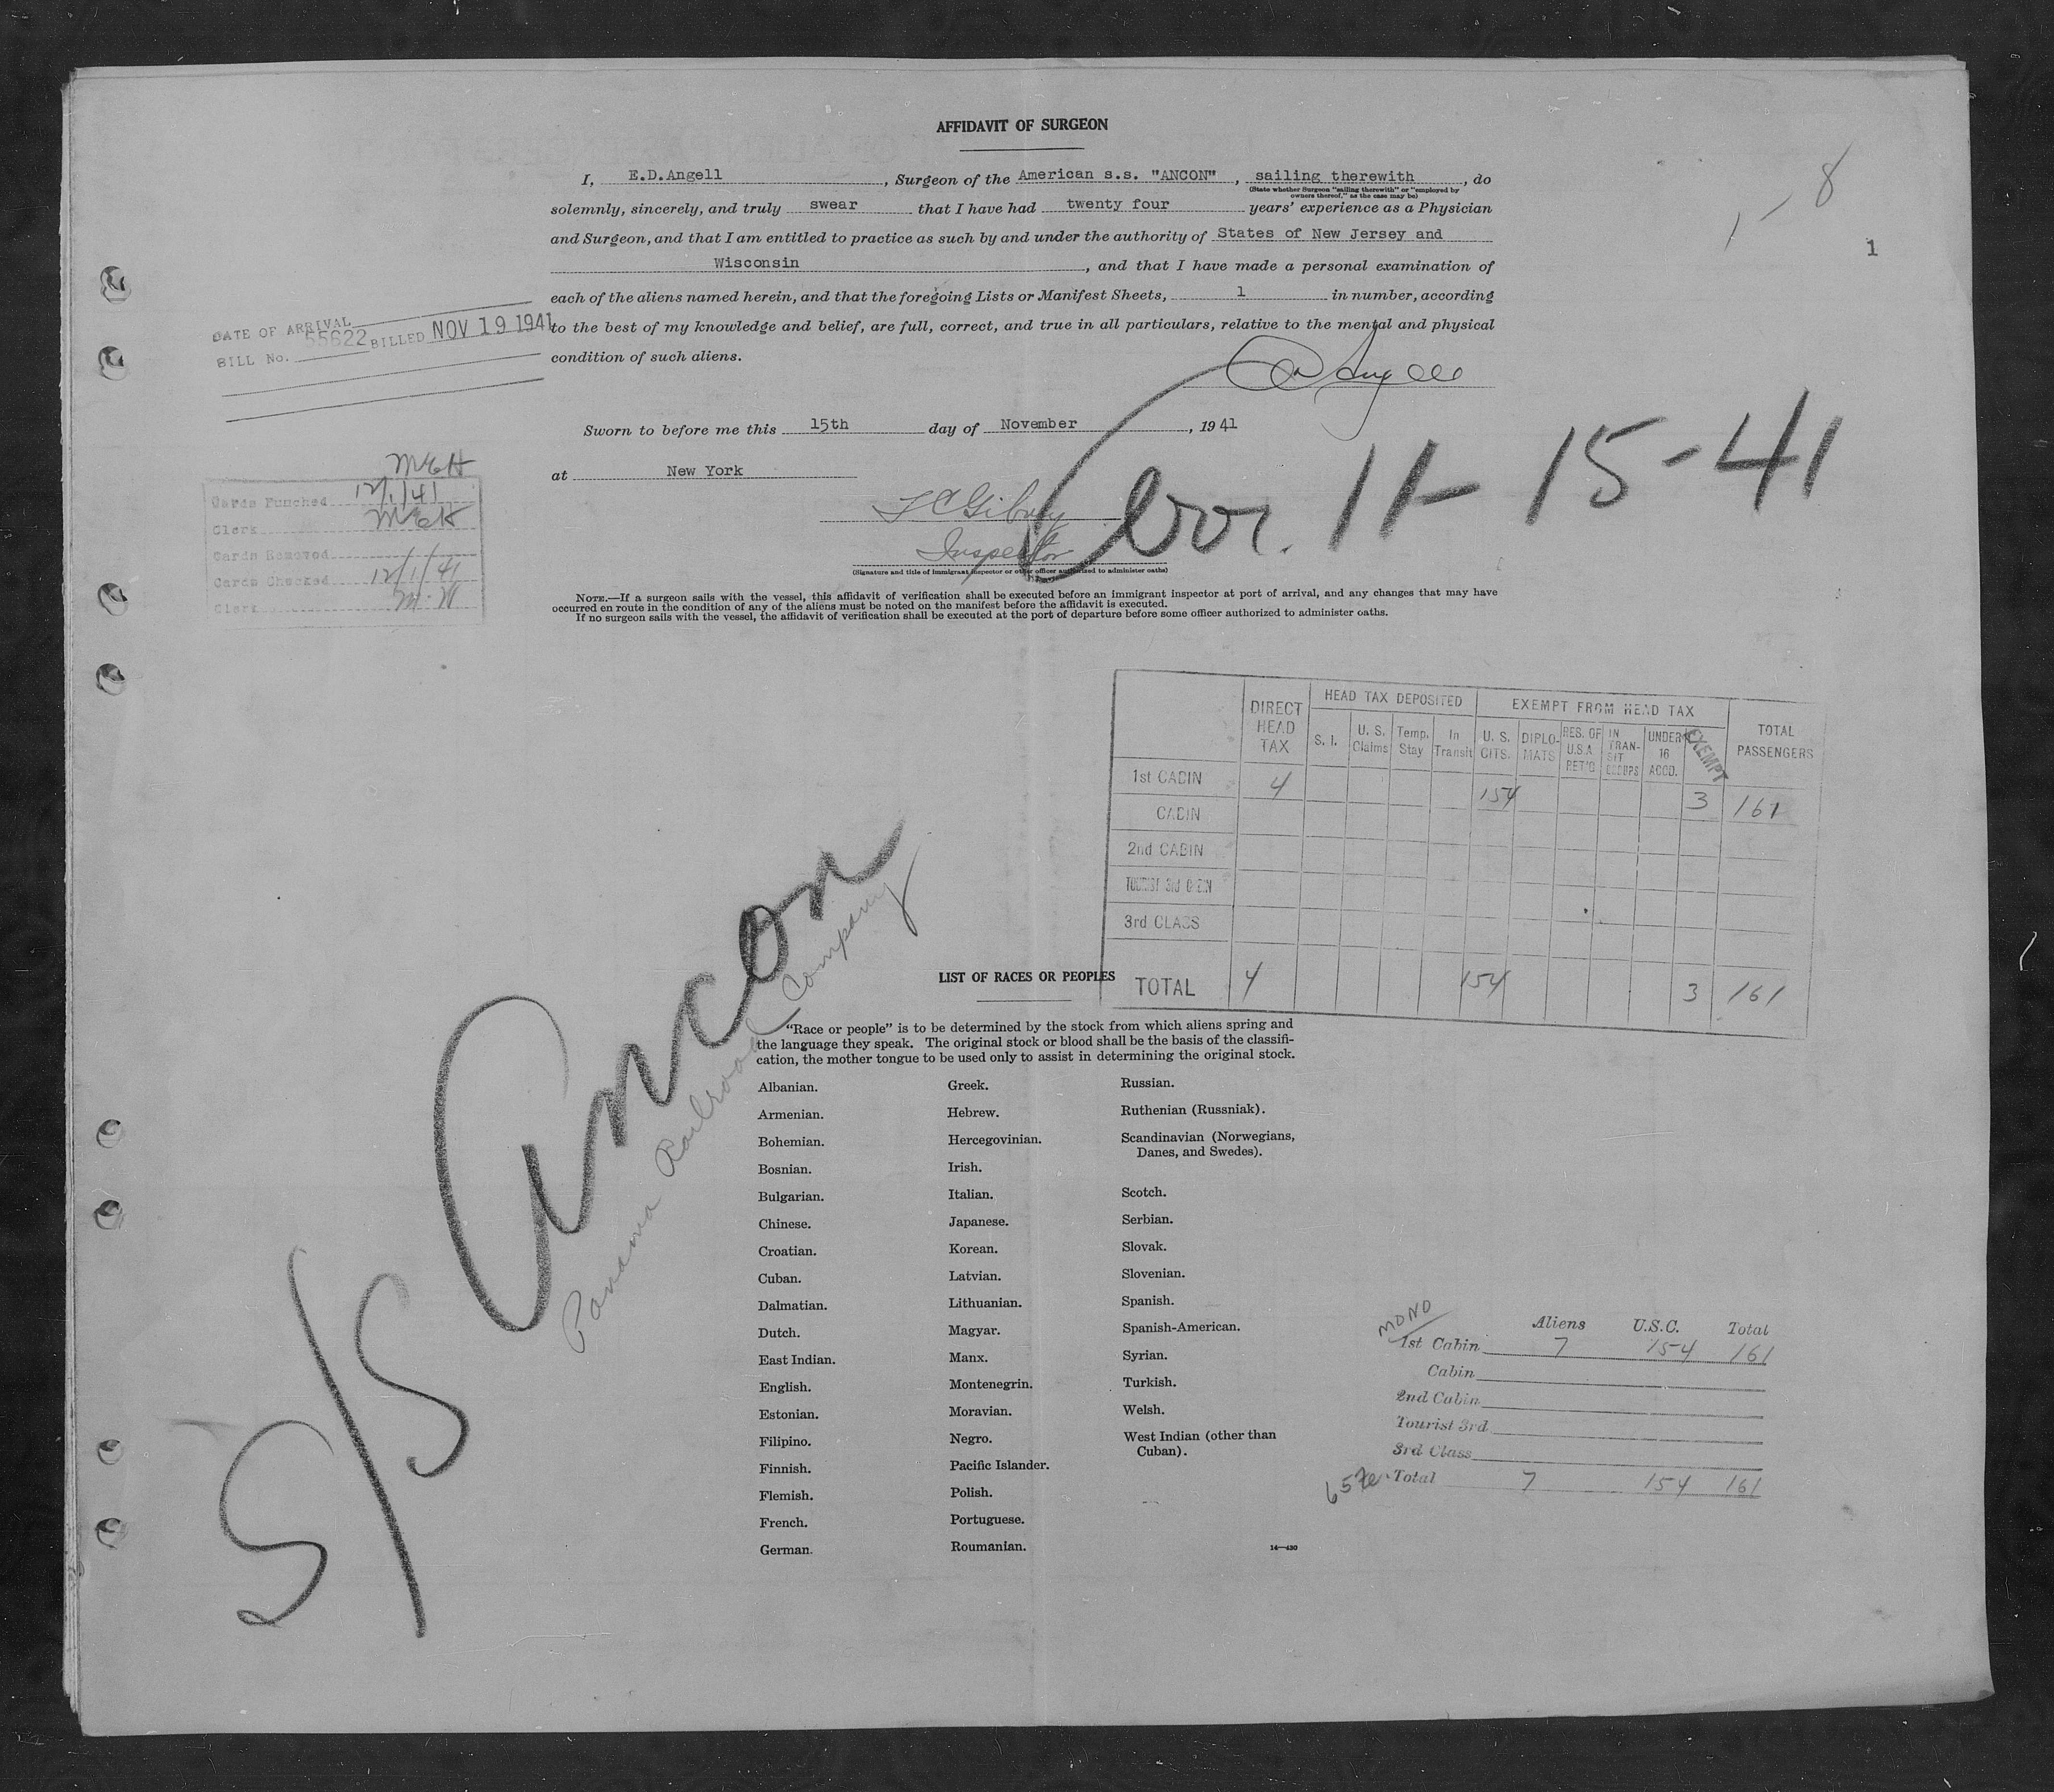 AFFIDAVIT OF SURGEON
I, E.D.Angell, Surgeon of the American s.s. "ANCON", sailing therewith, do
(State whether Surgeon "sailing therewith" or "employed by
owners thereof," as the case may be)
solemnly, sincerely, and truly swear that I have had twenty four years' experience as a Physician
and Surgeon, and that I am entitled to practice as such by and under the authority of States of New Jersey and
Wisconsin, and that I have made a personal examination of
each of the aliens named herein, and that the foregoing Lists or Manifest Sheets, 1 in number, according
to the best of my knowledge and belief, are full, correct, and true in all particulars, relative to the mental and physical
condition of such aliens.
1 - 8
1
DATE OF ARRIVAL
BILL No. 55622 BILLED NOV 19 1941
Angell
Sworn to before me this 15th day of November, 1941
at New York
Inspector
(Signature and title of immigrant inspector or other officer authorized to administer oaths)
11-15-41
Cards Punched 12/1/41
Clerk
Cards Removed
Cards Checked 12/1/41
Clerk
NOTE.—If a surgeon sails with the vessel, this affidavit of verification shall be executed before an immigrant inspector at port of arrival, and any changes that may have
occurred en route in the condition of any of the aliens must be noted on the manifest before the affidavit is executed.
If no surgeon sails with the vessel, the affidavit of verification shall be executed at the port of departure before some officer authorized to administer oaths.
DIRECT HEAD TAX
HEAD TAX DEPOSITED
S. I.
U. S. Claims
Temp. Stay
In Transit
EXEMPT FROM HEAD TAX
U. S. CITS.
DIPLO-MATS
RES. OF U.S.A RET'D
IN TRAN-SIT GROUPS
UNDER 16 ACCD.
EXEMPT
TOTAL PASSENGERS
1st CABIN 4 154 3 161
CABIN
2nd CABIN
TOURIST 3rd CABIN
3rd CLASS
TOTAL 4 154 3 161
S/S Ancon
Panama Railroad Company
LIST OF RACES OR PEOPLES
"Race or people" is to be determined by the stock from which aliens spring and
the language they speak. The original stock or blood shall be the basis of the classifi-
cation, the mother tongue to be used only to assist in determining the original stock.
Albanian.
Armenian.
Bohemian.
Bosnian.
Bulgarian.
Chinese.
Croatian.
Cuban.
Dalmatian.
Dutch.
East Indian.
English.
Estonian.
Filipino.
Finnish.
Flemish.
French.
German.
Greek.
Hebrew.
Hercegovinian.
Irish.
Italian.
Japanese.
Korean.
Latvian.
Lithuanian.
Magyar.
Manx.
Montenegrin.
Moravian.
Negro.
Pacific Islander.
Polish.
Portuguese.
Roumanian.
Russian.
Ruthenian (Russniak).
Scandinavian (Norwegians,
Danes, and Swedes).
Scotch.
Serbian.
Slovak.
Slovenian.
Spanish.
Spanish-American.
Syrian.
Turkish.
Welsh.
West Indian (other than
Cuban).
14—430
MONO
Aliens U.S.C. Total
1st Cabin 7 154 161
Cabin
2nd Cabin
Tourist 3rd
3rd Class
Total 7 154 161